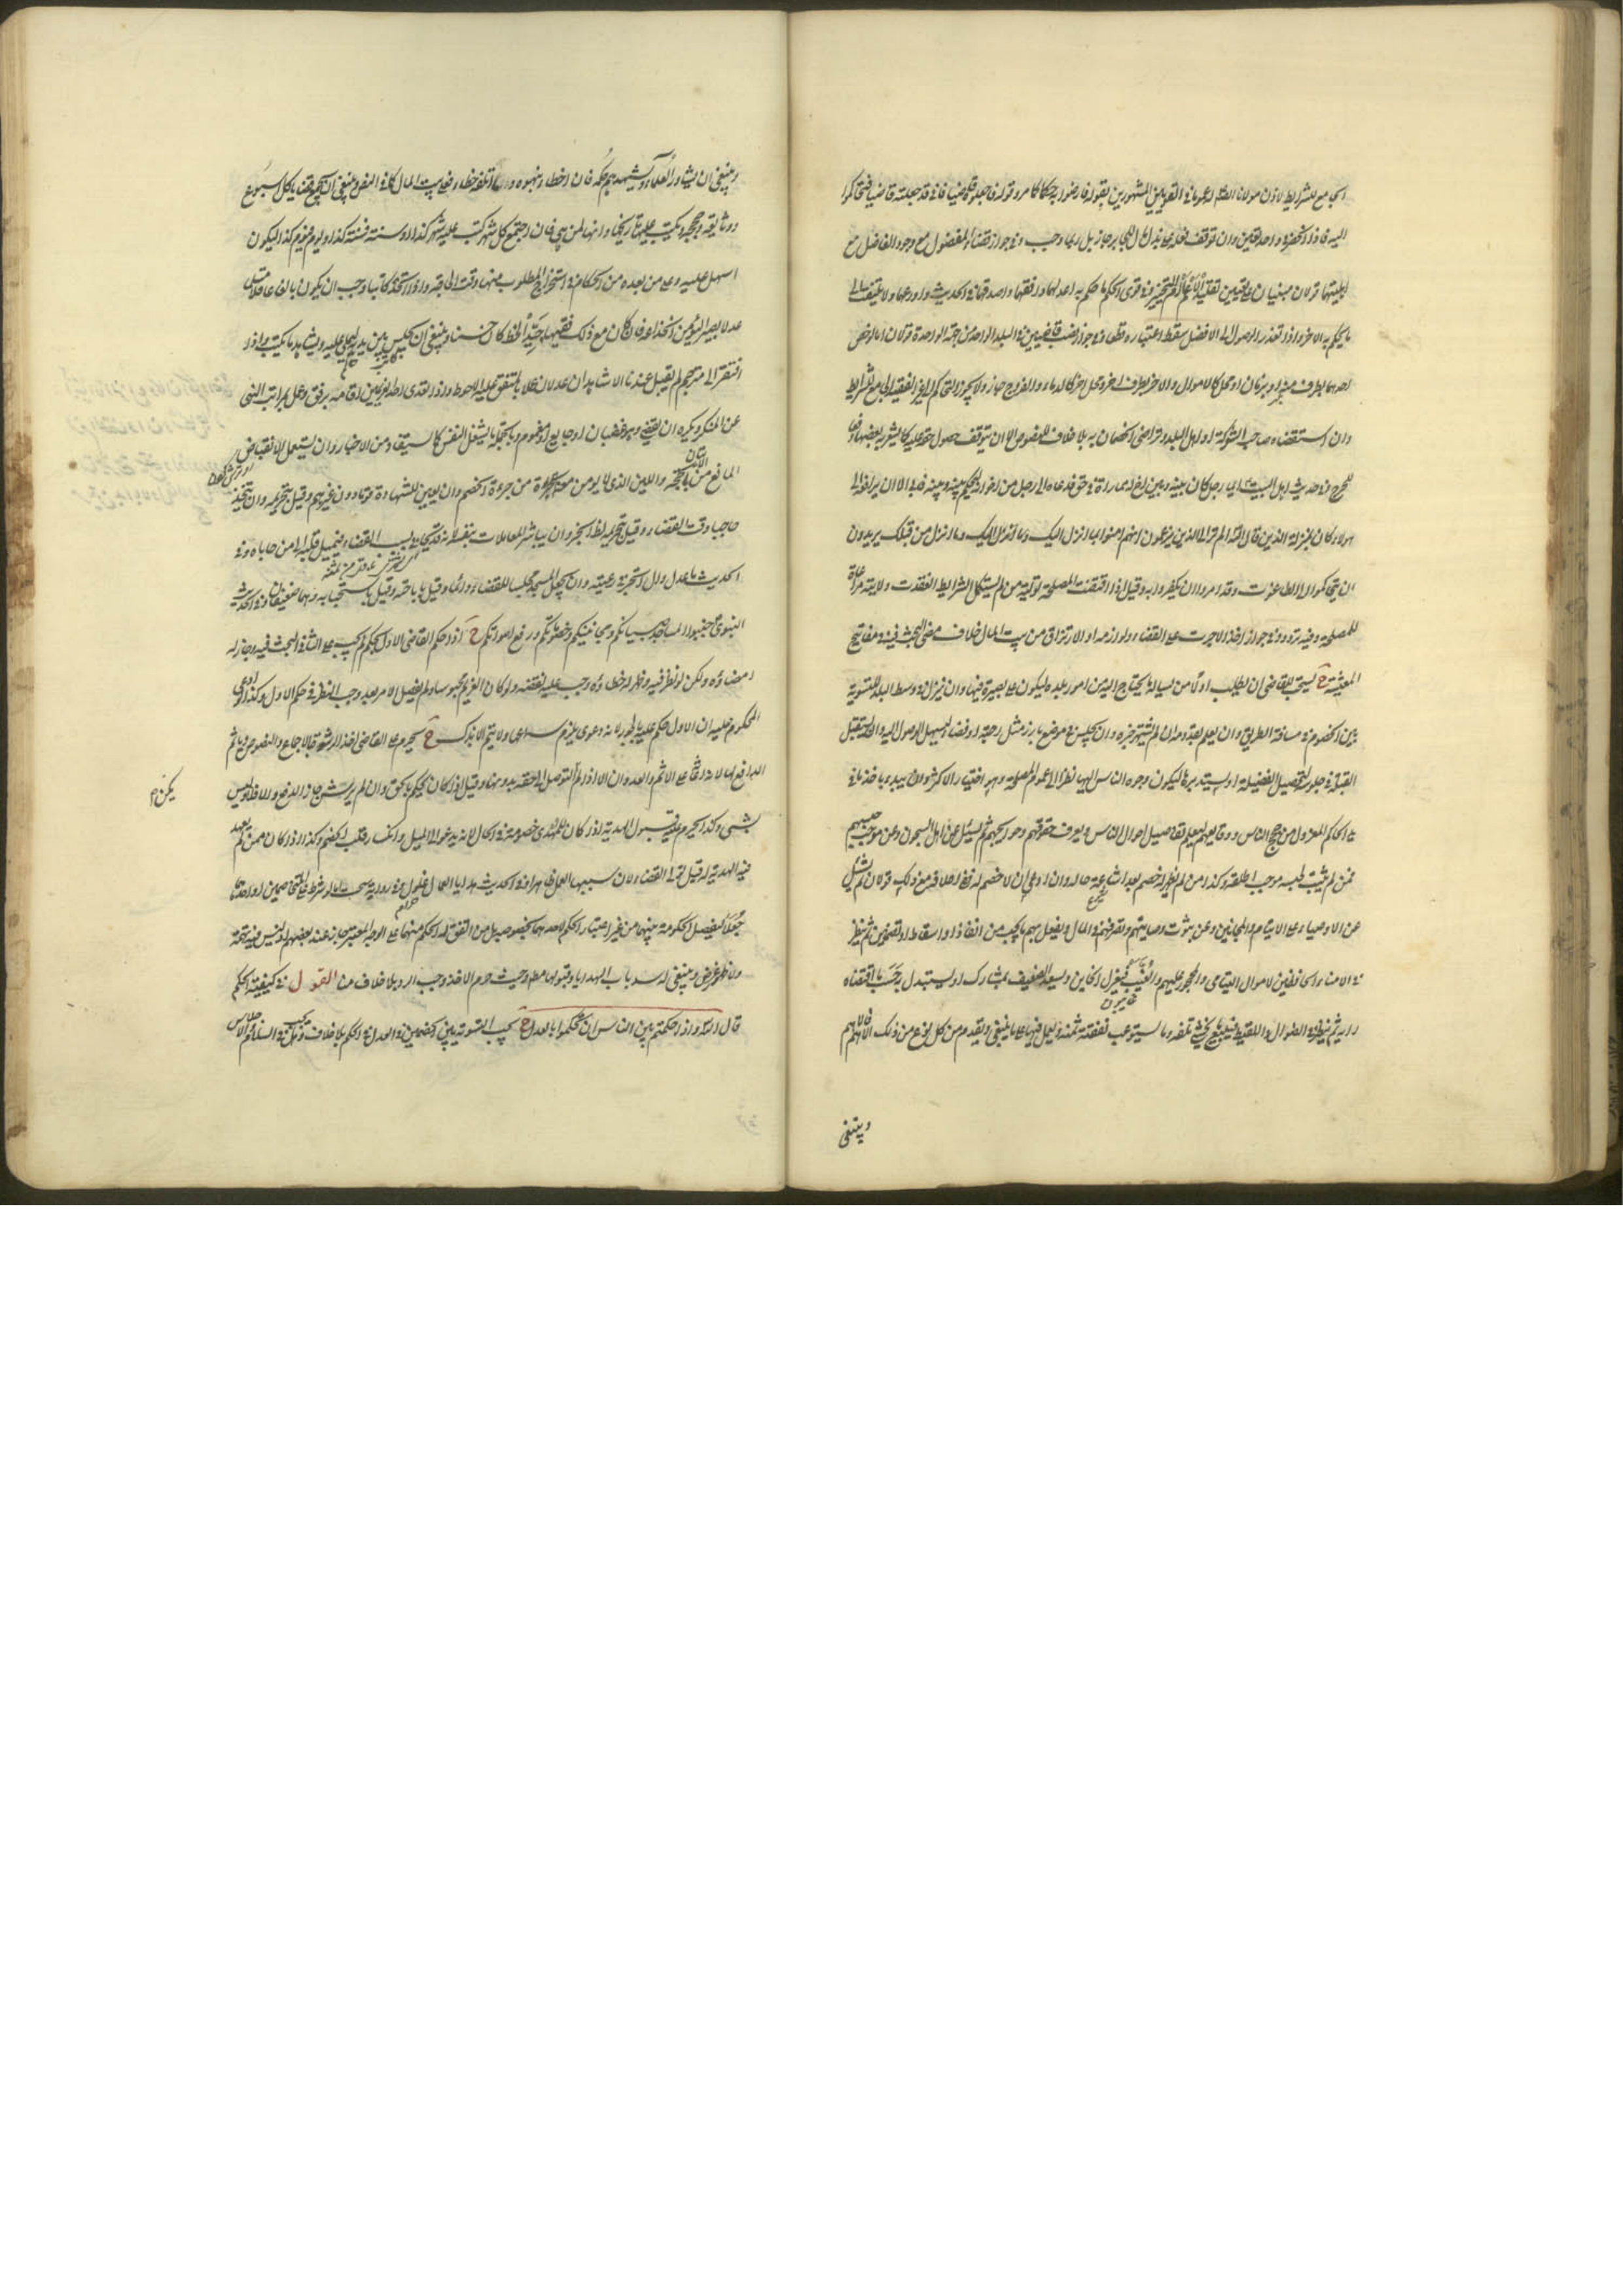 الجامع للشرايط لاذن مولانا الصادق عموما في القولين المشهورين بقوله فارضوا به حكما كما مر وقوله فاجعلوه قاضيا فاني قد جعلته قاضيا فتحاكموا
اليه فاذا انحصر في واحد تعين وان توقف على بذل مال للجابر جاز بل ربما وجب وفي جواز قضاء المفضول مع وجود الفاضل مع
اهليتهما قولان مبنيان على تعيين تقليد الاعلم الحكم ما حكم به اعدلهما وافقههما واصدقهما في الحديث واورعهما ولا يلتفت الى
ما يحكم به الاخر واذا تعذر الوصول الى الافضل سقط اعتباره قطعا وفي جواز نصب قاضيين في البلد الواحد من جهة الواحدة قولان اما لو خص
احدهما بطرف منه او بزمان او محل كالاموال والاخر بطرف اخر ومحل اخر كالدماء والفروج جاز ولا يجوز التحاكم الى غير الفقيه الجامع للشرايط
وان استقضاه صاحب الشوكة او اهل البلد وتراضى الخصمان به بلا خلاف للنصوص الا ان يتوقف حصول حقه عليه كما يشعر به بعضها
للحرج وفي حديث اهل البيت ايما رجل كان بينه وبين اخ له مماراة في حق فدعاه الى رجل من اخوانه ليحكم بينه وبينه فابى الا ان يرافعه الى
هؤلاء كان بمنزلة الذين قال الله الم تر الى الذين يزعمون انهم امنوا بما انزل اليك وما انزل من قبلك يريدون
ان يتحاكموا الى الطاغوت وقد امروا ان يكفروا به وقيل اذا اقتضت المصلحة تولية من لم يستكمل الشرايط انعقدت ولايته مراعاة
للمصلحة وفيه تردد وفي جواز اخذ الاجرة على القضاء ولوازمه او الارتزاق من بيت المال خلاف مضى البحث فيه في مفاتيح
المعيشة ح يستحب للقاضي ان يطلب اولا من يساله ما يحتاج اليه من امور بلده ليكون على بصيرة فيها وان ينزل في وسط البلد للتسوية
بين الخصوم في مسافة الطريق وان يعلم بقدومه ان لم يشتهر خبره وان يجلس في موضع بارز مثل رحبة او فضاء ليسهل الوصول اليه وان يستقبل
القبلة في جلوسه لتحصيل الفضيلة او يستدبرها ليكون وجوه الناس اليها نظرا الى عموم المصلحة وهو اختيار الاكثر وان يبدء باخذ ما في
يد الحاكم المعزول من حجج الناس وودايعهم ليعلم تفاصيل احوال الناس ويعرف حقوقهم وحوايجهم ثم يسئل عن اهل السجون وعن موجب حبسهم
فمن لم يثبت لحبسه موجب اطلقه وكذا من لم يظهر له خصم بعد اشاعة حاله وان ادعى ان لا خصم له ففي احلافه مع ذلك قولان ثم يسئل
عن الاوصياء على الايتام والمجانين وعن ثبوت وصايتهم وتصرفهم في المال ويفعل بهم ما يجب من انفاذ او اسقاط او تضمين ثم ينظر
في الامناء الحافظين لاموال اليتامى والمحجور عليهم والغيب فيعزل الخاين ويسعد الضعيف بمشارك او يستبدل بحسب ما اقتضاه
رايه ثم ينظر في الضوال واللقطة فيبيع ما يخشى تلفه وما يستوعب نفقته ثمنه ويعمل فيها ما ينبغي ويقدم من كل نوع من ذلك الاهم فالاهم
وينبغي
وينبغي ان يشاور العلماء ويشهدهم حكمه فان اخطا نبهوه وما اتلفه خطا ففي بيت المال كما في النص وينبغي ان يجمع قضايا كل اسبوع
ووثايقه وحججه ويكتب عليها تاريخها وانها لمن هي فان اجتمع كل شهر كتب عليه شهر كذا او سنة فسنة كذا او يوم فيوم كذا ليكون
اسهل عليه وعلى من بعده من الحكام في استخراج المطلوب منها وقت الحاجة واذا اتخذ كاتبا وجب ان يكون بالغا عاقلا مسلما
عدلا بصيرا ليؤمن انخداعه فان كان مع ذلك فقيها جيد الخط كان حسنا وينبغي ان يجلس بين يديه ليملي عليه ويشاهد ما يكتب واذا
افتقر الى مترجم لم يقبل عندنا الا شاهدان عدلان عملا بالمتفق عليه الاحوط واذا تعدى احد الغريمين اقامه برفق وعمل بمراتب النهي
عن المنكر ويكره ان يقضي وهو غضبان او جايع او مغموم وبالجملة ما يشغل النفس كما يستفاد من الاخبار وان يستعمل الانقباض
المانع من الحجة واللين الذي لا يؤمن معه من جرءة الخصم وان يعين للشهادة قوما دون غيرهم وقيل بتحريمه وان يتخذ
حاجبا وقت القضاء وقيل بتحريمه لظاهر الخبر وان يباشر المعاملات بنفسه لانه قد يحابى بسبب القضاء فيميل قلبه الى من حاباه وفي
الحديث ما عدل وال اتجر في رعيته وان يجعل المسجد مجلسا للقضاء دائما وقيل باباحته وقيل باستحبابه وهما ضعيفان وفي الحديث
النبوي جنبوا المساجد صبيانكم ومجانينكم وخصوماتكم ورفع اصواتكم ح اذا حكم القاضي الاول بحكم لم يجب على الثاني البحث فيه وجاز له
امضاؤه ولكن لو نظر فيه وظهر له خطاؤه وجب عليه نقضه ولو كان الغريم محبوسا ولم يفصل الامر بعد وجب النظر في حكم الاول وكذا لو ادعى
المحكوم عليه ان الاول حكم عليه بالجور لانه دعوى يلزم سماعها ولا يتم الا بذلك ح يحرم على القاضي اخذ الرشوة بالاجماع والنصوص وياثم
الدافع لها لانه اعانة على الاثم والعدوان الا اذا لم يكن التوصل الى حقه بدونها وقيل اذا كان يحكم بالحق وان لم يرتش جاز الدفع والا فلا وليس
يكن م
بشيء وكذا يحرم عليه قبول الهدية اذا كان للمهدي خصومة في الحال لانه يدعو الى الميل وانكسار قلب الخصم وكذا اذا كان ممن لم يعهد
منه الهدية له قبل تولى القضاء لان سببها العمل ظاهرا وفي الحديث هدايا العمال غلول وفي رواية سحت
جعلا ليفصل الحكومة بينهما من غير اعتبار الحكم لاحدهما بخصوصه بل من اتفق له الحكم منهما على الوجه المعتبر جاز عند بعضهم اذ ليس فيه تهمة
ولا ظهور غرض وينبغي له سد باب الهدايا وقبولها مطلقا وحيث حرم الاخذ وجب الرد بلا خلاف منا القول في كيفية الحكم
قال الله واذا حكمتم بين الناس ان تحكموا بالعدل ح يجب التسوية بين الخصمين في العدل في الحكم بلا خلاف